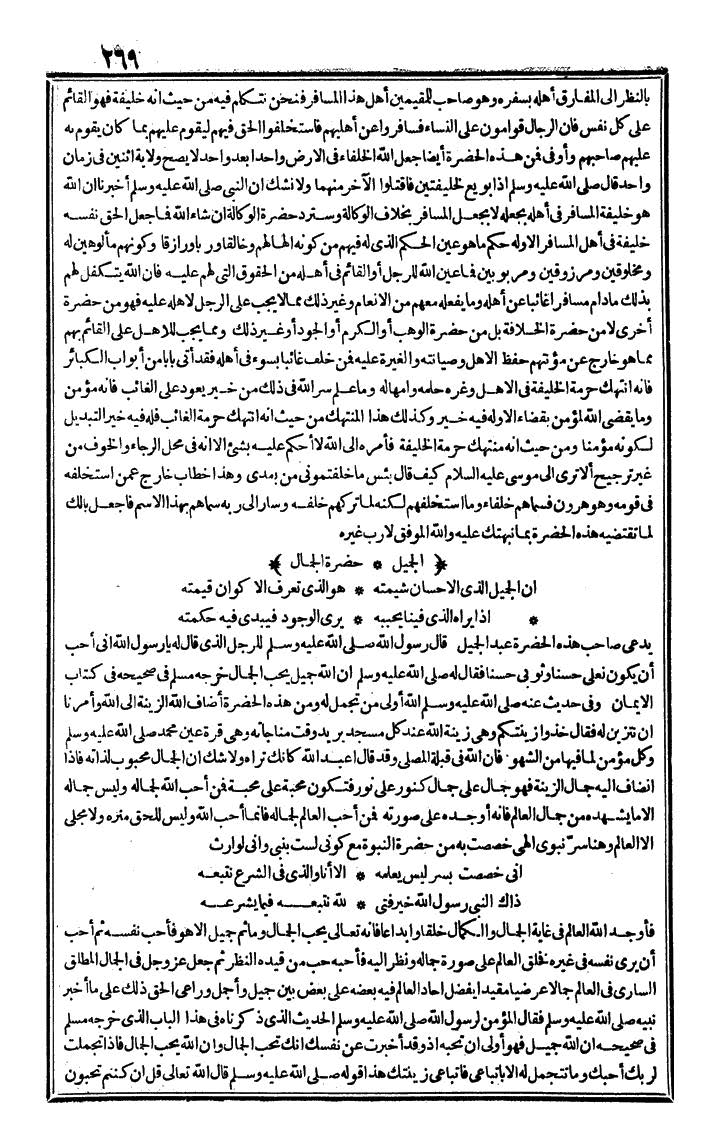 ٢٦٩
بالنظر الى المفارق أهله بسفره وهو صاحب للمقيمين أهل هذا المسافر فنحن نتكلم فيه من حيث انه خليفة فهو القائم
على كل نفس فان الرجال قوامون على النساء فسافروا عن أهليهم فاستخلفوا الحق فيهم ليقوم عليهم بما كان يقوم به
عليهم صاحبهم وأوفى فمن هذه الحضرة أيضا جعل الله الخلفاء فى الارض واحدا بعد واحد لا يصح ولاية اثنين فى زمان
واحد قال صلى الله عليه وسلم اذا بويع لخليفتين فاقتلوا الآخر منهما ولا نشك ان النبى صلى الله عليه وسلم أخبرنا ان الله
هو خليفة المسافر فى أهله بجعله لا بجعل المسافر بخلاف الوكالة وسترد حضرة الوكالة ان شاء الله فما جعل الحق نفسه
خليفة فى أهل المسافر الا وله حكم ما هو عين الحكم الذى له فيهم من كونه الهالهم وخالقا وربا ورازقا وكونهم مألوهين له
ومخلوقين ومرزوقين ومربوبين فما عين الله للرجل أو القائم فى أهله من الحقوق التى لهم عليه فان الله يتكفل لهم
بذلك مادام مسافرا غائبا عن أهله وما يفعله معهم من الانعام وغير ذلك مما لا يجب على الرجل لاهله عليه فهو من حضرة
أخرى لا من حضرة الخلافة بل من حضرة الوهب أو الكرم أو الجود أو غير ذلك ومما يجب للاهل على القائم بهم
مما هو خارج عن مؤنتهم حفظ الاهل وصيانته والغيرة عليه فمن خلف غائبا بسوء فى أهله فقد أتى بابا من أبواب الكبائر
فانه انتهك حرمة الخليفة فى الاهل وغره حلمه وامهاله وما علم سر الله فى ذلك من خير يعود على الغائب فانه مؤمن
وما يقضى الله لمؤمن بقضاء الا وله فيه خير وكذلك هذا المنتهك من حيث انه انتهك حرمة الغائب فله فيه خير التبديل
لكونه مؤمنا ومن حيث انه منتهك حرمة الخليفة فأمره الى الله لا أحكم عليه بشئ الا انه فى محل الرجاء والخوف من
غير ترجيح ألا ترى الى موسى عليه السلام كيف قال بئس ما خلفتمونى من بعدى وهذا خطاب خارج عمن استخلفه
فى قومه وهو هرون فسماهم خلفاء وما استخلفهم لكنه لما تركهم خلفه وسار الى ربه سماهم بهذا الاسم فاجعل بالك
لما تقتضيه هذه الحضرة بما نبهتك عليه والله الموفق لا رب غيره
﴿ الجيل * حضرة الجمال ﴾
ان الجميل الذى الاحسان شيمته * هو الذى تعرف الاكوان قيمته
* اذا يراه الذى فينا يحببه * يرى الوجود فيبدى فيه حكمته
يدعى صاحب هذه الحضرة عبد الجميل قال رسول الله صلى الله عليه وسلم للرجل الذى قال له يا رسول الله انى أحب
أن يكون نعلى حسنا وثوبى حسنا فقال له صلى الله عليه وسلم ان الله جميل يحب الجمال خرجه مسلم فى صحيحه فى كتاب
الايمان وفى حديث عنه صلى الله عليه وسلم الله أولى من تجمل له ومن هذه الحضرة أضاف الله الزينة الى الله وأمرنا
ان نتزين له فقال خذوا زينتكم وهى زينة الله عند كل مسجد يريد وقت مناجاته وهى قرة عين محمد صلى الله عليه وسلم
وكل مؤمن لما فيها من الشهود فان الله فى قبلة المصلى وقد قال اعبد الله كانك تراه ولا شك ان الجمال محبوب لذاته فاذا
انضاف اليه جمال الزينة فهو جمال على جمال كنور على نور فتكون محبة على محبة فمن أحب الله لجماله وليس جماله
الا ما يشهده من جمال العالم فانه أوجده على صورته فمن أحب العالم لجماله فانما أحب الله وليس للحق منزه ولا مجلى
الا العالم وهنا سرّ نبوى الهى خصصت به من حضرة النبوة مع كونى لست بنبى وانى لوارث
انى خصصت بسر ليس يعلمه * الا أنا والذى فى الشرع نتبعه
ذاك النبى رسول الله خير فتى * لله نتبعه فيما يشرعه
فأوجد الله العالم فى غاية الجمال والكمال خلقا وابداعا فانه تعالى يحب الجمال وما ثم جميل الا هو فأحب نفسه ثم أحب
أن يرى نفسه فى غيره فخلق العالم على صورة جماله ونظر اليه فأحبه حب من قيده النظر ثم جعل عز وجل فى الجمال المطلق
السارى فى العالم جمالا عرضيا مقيدا يفضل احاد العالم فيه بعضه على بعض بين جميل وأجمل وراعى الحق ذلك على ما أخبر
نبيه صلى الله عليه وسلم فقال المؤمن لرسول الله صلى الله عليه وسلم الحديث الذى ذكرناه فى هذا الباب الذى خرجه مسلم
فى صحيحه ان الله جميل فهو أولى ان تحبه اذ وقد أخبرت عن نفسك انك تحب الجمال وان الله يحب الجمال فاذا تجملت
لربك أحبك وما تتجمل له الا باتباعى فاتباعى زينتك هذا قوله صلى الله عليه وسلم قال الله تعالى قل ان كنتم تحبون